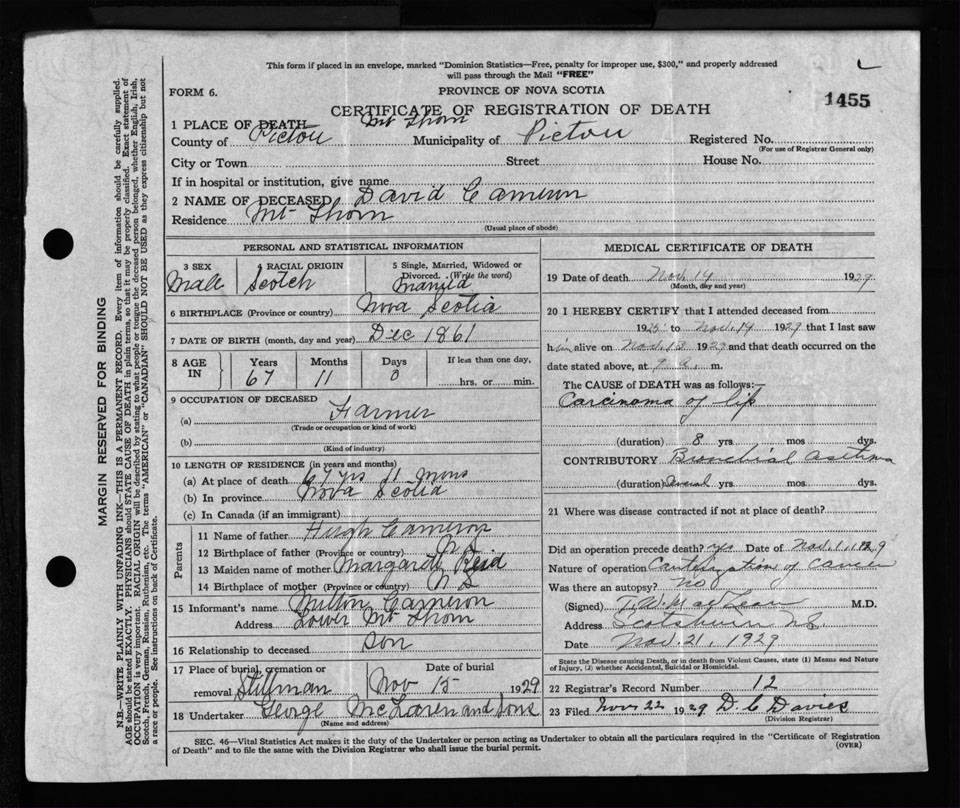 This form if placed in an envelope, marked "Dominion Statistics—Free, penalty for improper use, $300," and properly addressed
will pass through the Mail "FREE"
FORM 6.
PROVINCE OF NOVA SCOTIA
1455
CERTIFICATE OF REGISTRATION OF DEATH
1 PLACE OF DEATH Mt Thom
County of Pictou Municipality of Pictou Registered No.
(For use of Registrar General only)
City or Town Street House No.
If in hospital or institution, give name
2 NAME OF DECEASED David Cameron
Residence Mt Thom
(Usual place of abode)
PERSONAL AND STATISTICAL INFORMATION
3 SEX Male
4 RACIAL ORIGIN Scotch
5 Single, Married, Widowed or
Divorced. (Write the word)
Married
6 BIRTHPLACE (Province or country) Nova Scotia
7 DATE OF BIRTH (month, day and year) Dec 1861
8 AGE IN Years 67 Months 11 Days 0 If less than one day,
hrs. or min.
9 OCCUPATION OF DECEASED
(a) Farmer
(Trade or occupation or kind of work)
(b)
(Kind of industry)
10 LENGTH OF RESIDENCE (in years and months)
(a) At place of death 67 yrs 11 mons
(b) In province Nova Scotia
(c) In Canada (if an immigrant)
Parents
11 Name of father Hugh Cameron
12 Birthplace of father (Province or country) N S
13 Maiden name of mother Margaret Reid
14 Birthplace of mother (Province or country) N S
15 Informant's name Milton Cameron
Address Lower Mt Thom
16 Relationship to deceased Son
17 Place of burial, cremation or Date of burial
removal Stillman Nov 15 1929
18 Undertaker George McLaren and Sons
(Name and address)
MEDICAL CERTIFICATE OF DEATH
19 Date of death Nov. 14 1929
(Month, day and year)
20 I HEREBY CERTIFY that I attended deceased from
192 to Nov. 14 1929 that I last saw
him alive on Nov. 13 1929 and that death occurred on the
date stated above, at 9 m.
The CAUSE of DEATH was as follows:—
Carcinoma of lip
(duration) 8 yrs mos dys.
CONTRIBUTORY Bronchial asthma
(duration) Several yrs. mos. dys.
21 Where was disease contracted if not at place of death?
Did an operation precede death? yes Date of Nov. 1, 1929
Nature of operation Cauterization of Cancer
Was there an autopsy? No
(Signed) M.D.
Address Scotsburn N.S.
Date Nov. 21, 1929
State the Disease causing Death, or in death from Violent Causes, state (1) Means and Nature
of Injury, (2) whether Accidental, Suicidal or Homicidal.
22 Registrar's Record Number 12
23 Filed Nov 22 1929 D. C Davies
(Division Registrar)
SEC. 46—Vital Statistics Act makes it the duty of the Undertaker or person acting as Undertaker to obtain all the particulars required in the "Certificate of Registration
of Death" and to file the same with the Division Registrar who shall issue the burial permit.
(OVER)
MARGIN RESERVED FOR BINDING
N.B.—WRITE PLAINLY WITH UNFADING INK—THIS IS A PERMANENT RECORD. Every item of information should be carefully supplied.
AGE should be stated EXACTLY. PHYSICIANS should STATE CAUSE OF DEATH in plain terms, so that it may be properly classified. Exact statement of
OCCUPATION is very important. RACIAL ORIGIN will be described by stating to what people or tongue the deceased person belonged, whether English, Irish,
Scotch, French, German, Russian, Ruthenian, etc. The terms "AMERICAN" or "CANADIAN" SHOULD NOT BE USED as they express citizenship but not
a race or people. See instructions on back of Certificate.